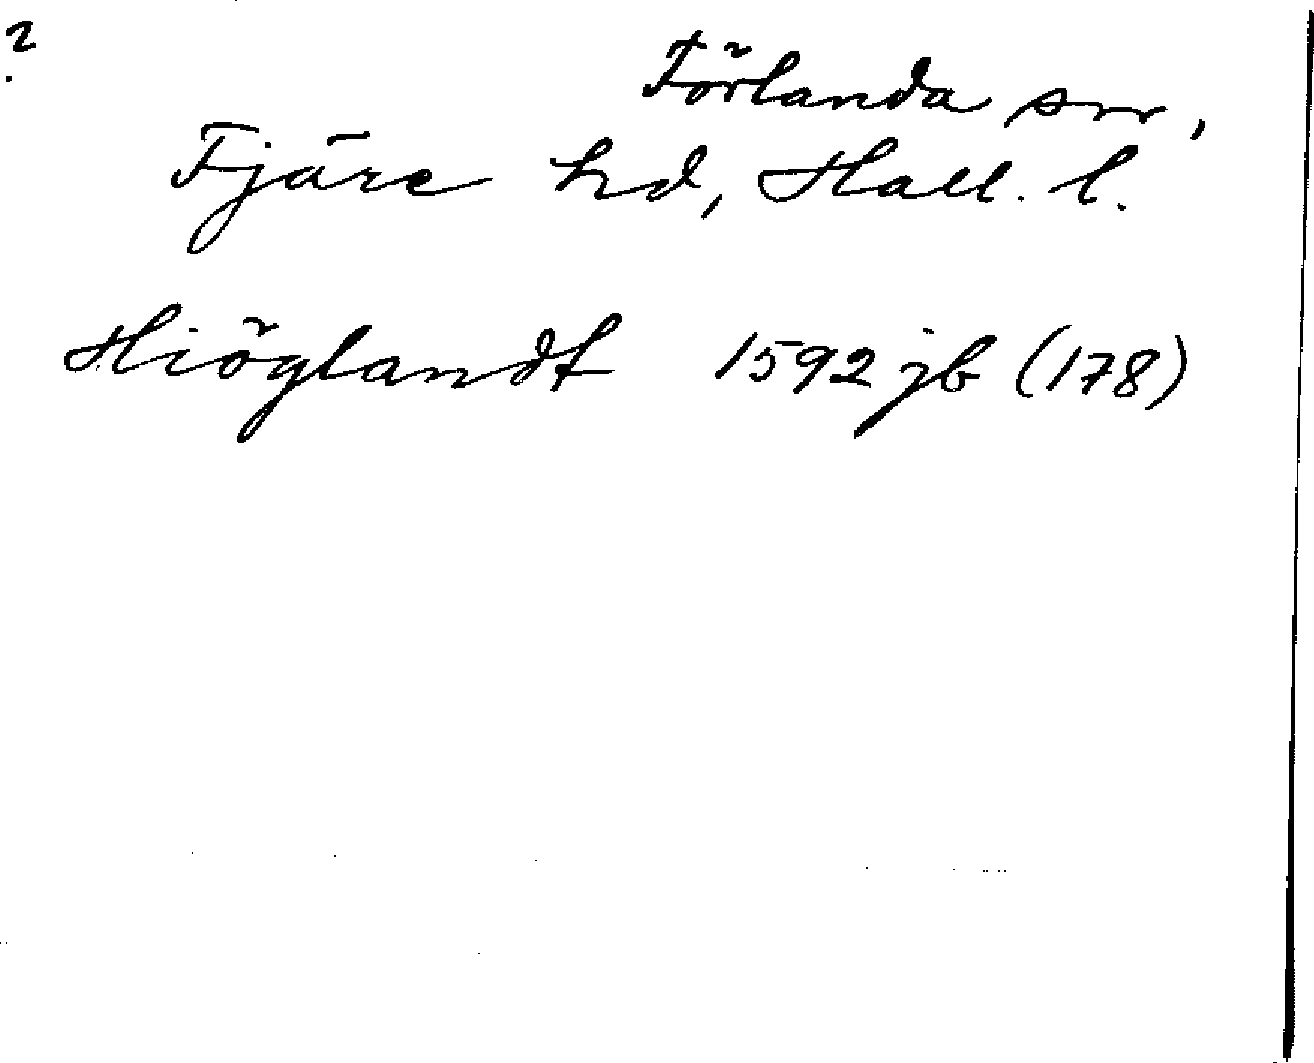 ?
Förlanda sn,
Fjäre hd, Hall. l.
Hiöglandt 1592 jb (178)